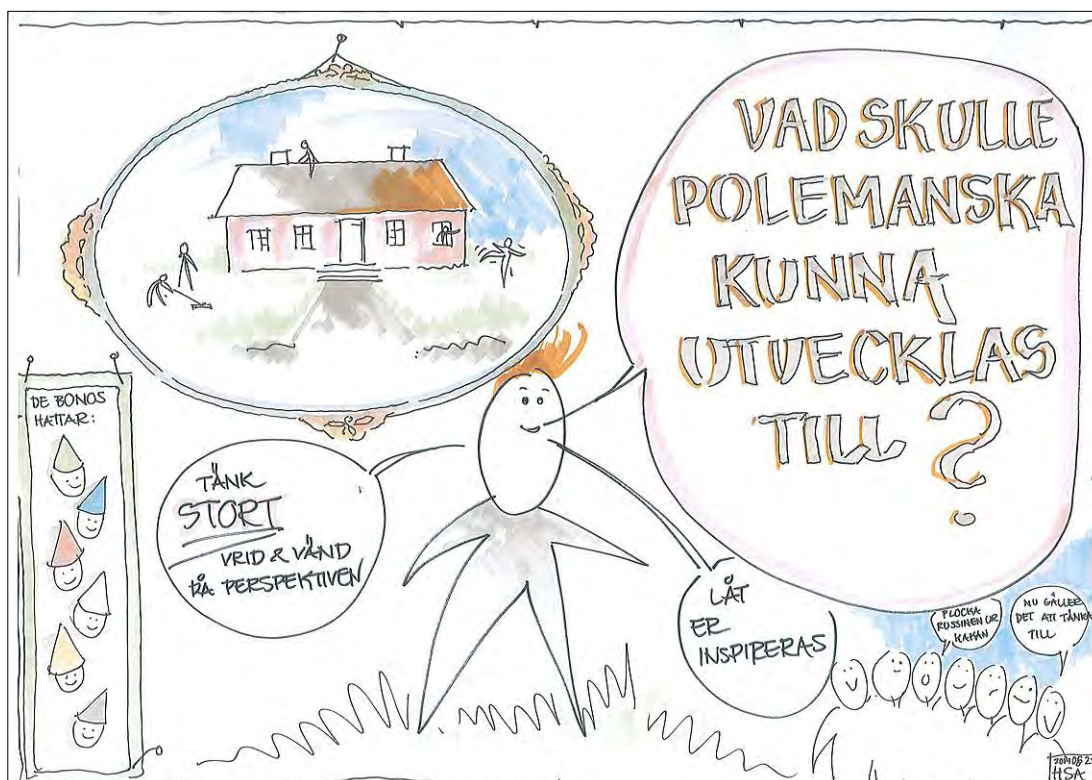 VAD SKULLE
POLEMANSKA
KUNNA
UTVECKLAS
TILL?
DE BONOS
HATTAR:
TÄNK
STORT
VRID & VÄND
PÅ PERSPEKTIVEN
LÅT
ER
INSPIRERAS
PLOCKA
RUSSINEN UR
KAKAN
NU GÄLLER
DET ATT TÄNKA
TILL
HSA